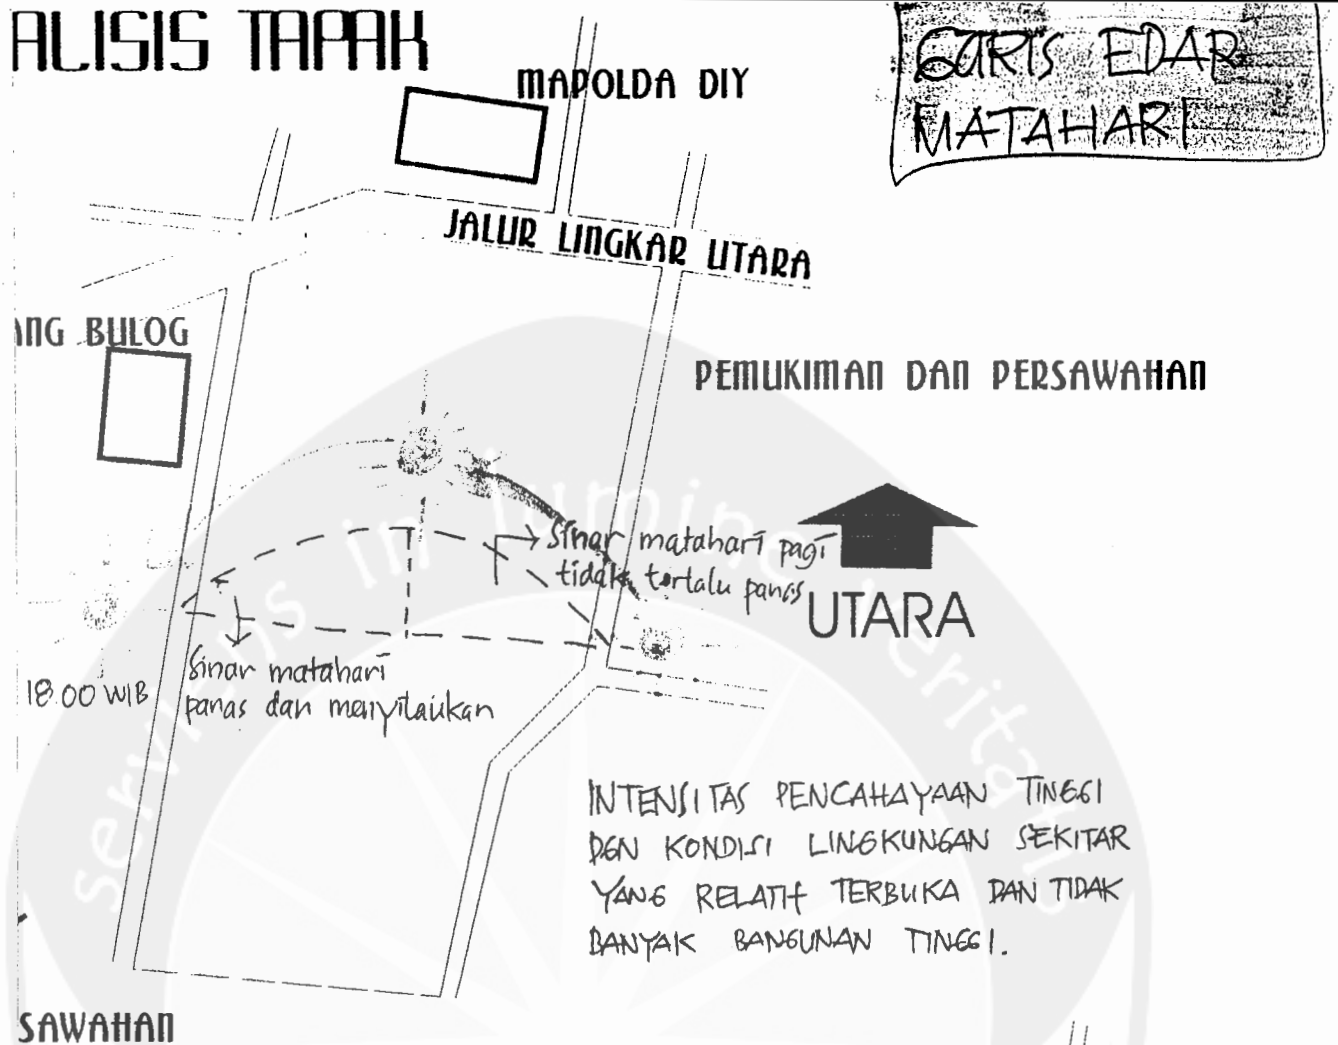 ALISIS TAPAK
GARIS EDAR
MATAHARI
MAPOLDA DIY
JALUR LINGKAR UTARA
ANG BULOG
PEMUKIMAN DAN PERSAWAHAN
Sinar matahari pagi
tidak tertalu panas
UTARA
Sinar matahari
panas dan menyilaukan
18.00 WIB
INTENSITAS PENCAHAYAAN TINGGI
DGN KONDISI LINGKUNGAN SEKITAR
YANG RELATIF TERBUKA DAN TIDAK
BANYAK BANGUNAN TINGGI.
SAWAHAN
serviens in lumine veritatis